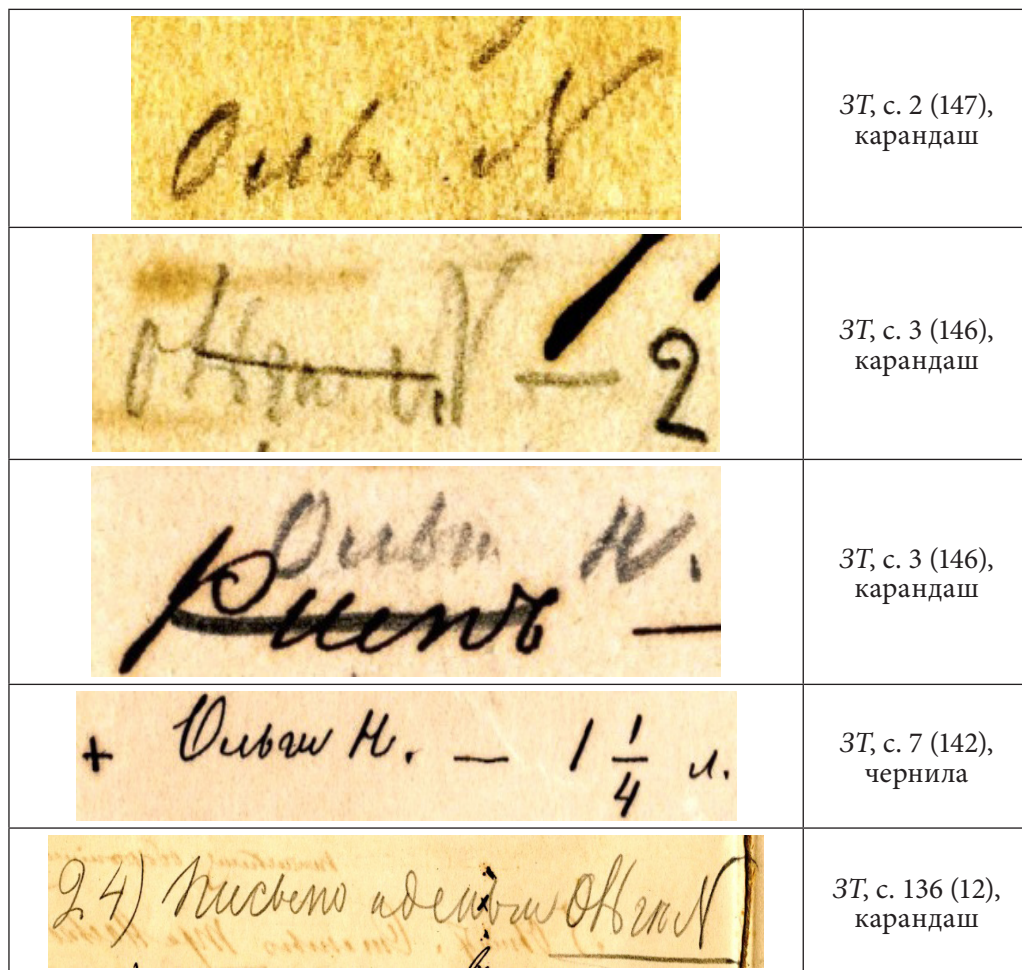 Оль N
ЗТ, с. 2 (147),
карандаш
N — 2
ЗТ, с. 3 (146),
карандаш
Ольги Н.
ЗТ, с. 3 (146),
карандаш
+ Ольги Н. — 1 1/4 л.
ЗТ, с. 7 (142),
чернила
24) Письмо и деньги Ольги N
ЗТ, с. 136 (12),
карандаш